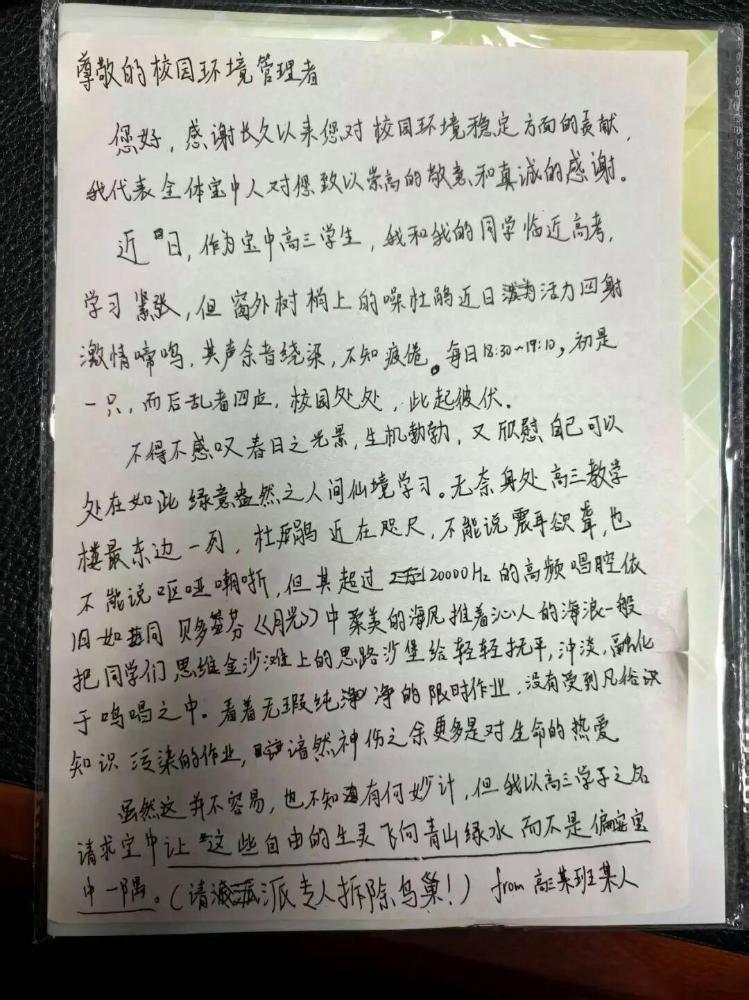 尊敬的校园环境管理者
您好，感谢长久以来您对校园环境稳定方面的贡献，
我代表全体宝中人对您致以崇高的敬意和真诚的感谢。
近日，作为宝中高三学生，我和我的同学临近高考，
学习紧张，但窗外树梢上的噪杜鹃近日活力四射
激情啼鸣，其声余音绕梁，不知疲倦。每日18:30~19:10，初是
一只，而后乱者四应，校园处处，此起彼伏。
不得不感叹春日之光景，生机勃勃，又欣慰自己可以
处在如此绿意盎然之人间仙境学习。无奈身处高三教学
楼最东边一列，杜鹃近在咫尺，不能说震耳欲聋，也
不能说呕哑嘲哳，但其超过20000Hz的高频唱腔依
旧如同贝多芬《月光》中柔美的海风推着沁人的海浪一般
把同学们思维金沙滩上的思路沙堡给轻轻抚平，冲淡，融化
于鸣唱之中。看着无瑕纯净的限时作业，没有受到凡俗识
知识污染的作业，谙然神伤之余更多是对生命的热爱
虽然这并不容易，也不知有何妙计，但我以高三学子之名
请求宝中让这些自由的生灵飞向青山绿水而不是偏安宝
中一隅。（请派专人拆除鸟巢！） from 高三某班王某人